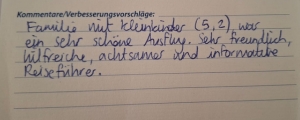 Kommentare/Verbesserungsvorschläge:
Familie mit Kleinkinder (5,2) war
ein sehr schöne Ausflug. Sehr freundlich,
hilfreiche, achtsamer und informative
Reiseführer.